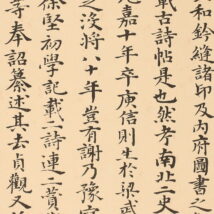 和鈐縫諸印及內府圖書
載古詩帖是也然考南北二史
嘉十年卒庾信則生於梁武
之沒將八十年豈有謝乃豫
徐堅初學記載二詩連二賛
奉詔纂述其去貞觀又